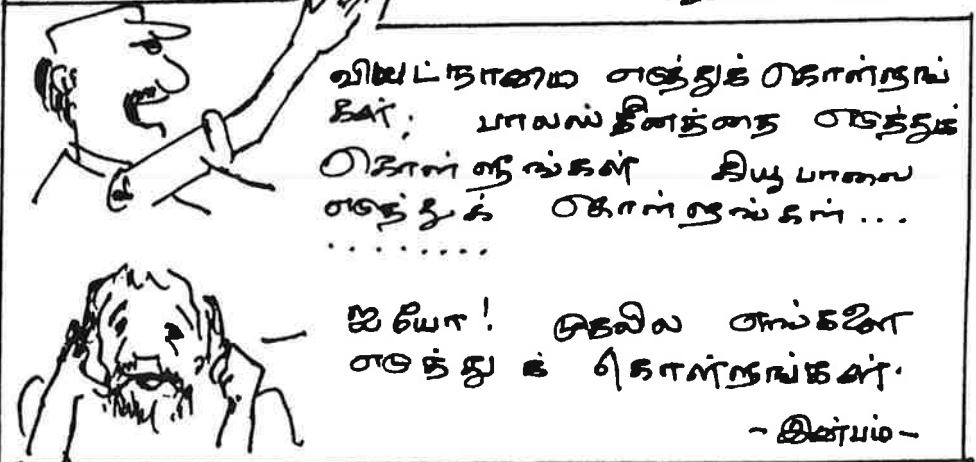 வியட்நாமை எடுத்துக் கொள்ளுங்
கள்; பாலஸ்தீனத்தை எடுத்துக்
கொள்ளுங்கள் கியூபாவை
எடுத்துக் கொள்ளுங்கள்...
.........
ஐயோ! முதலில எங்களை
எடுத்துக் கொள்ளுங்கள்.
~ இன்பம் ~